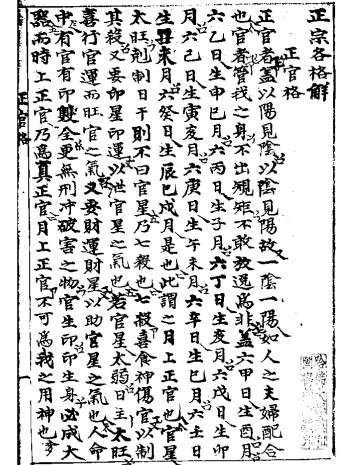 正宗各格解
正官格
正官者盖以陽見陰以陰見陽故一陰一陽如人之夫婦配合
也官者管我之身不出規矩不敢放逸爲非盖六甲日生酉月
六乙日生申巳月六丙日生子月六丁日生亥月六戊日生卯
月六己日生寅亥月六庚日生午未月六辛日生巳月六壬日
生丑未月六癸日生辰巳戌月是也此謂之月上正官也官星
太旺剋制日干則不曰官星乃七殺也七殺喜食神傷官以制
其殺又要印星印運以泄官星之氣也若官星太弱日主太旺
喜行官運而旺官之氣又要財運財星以助官星之氣也人命
中有官有印雙全更無刑冲破害之物官生印印生身必成大
器而時上正官乃爲真正官月上正官不可爲我之用神也
正官格